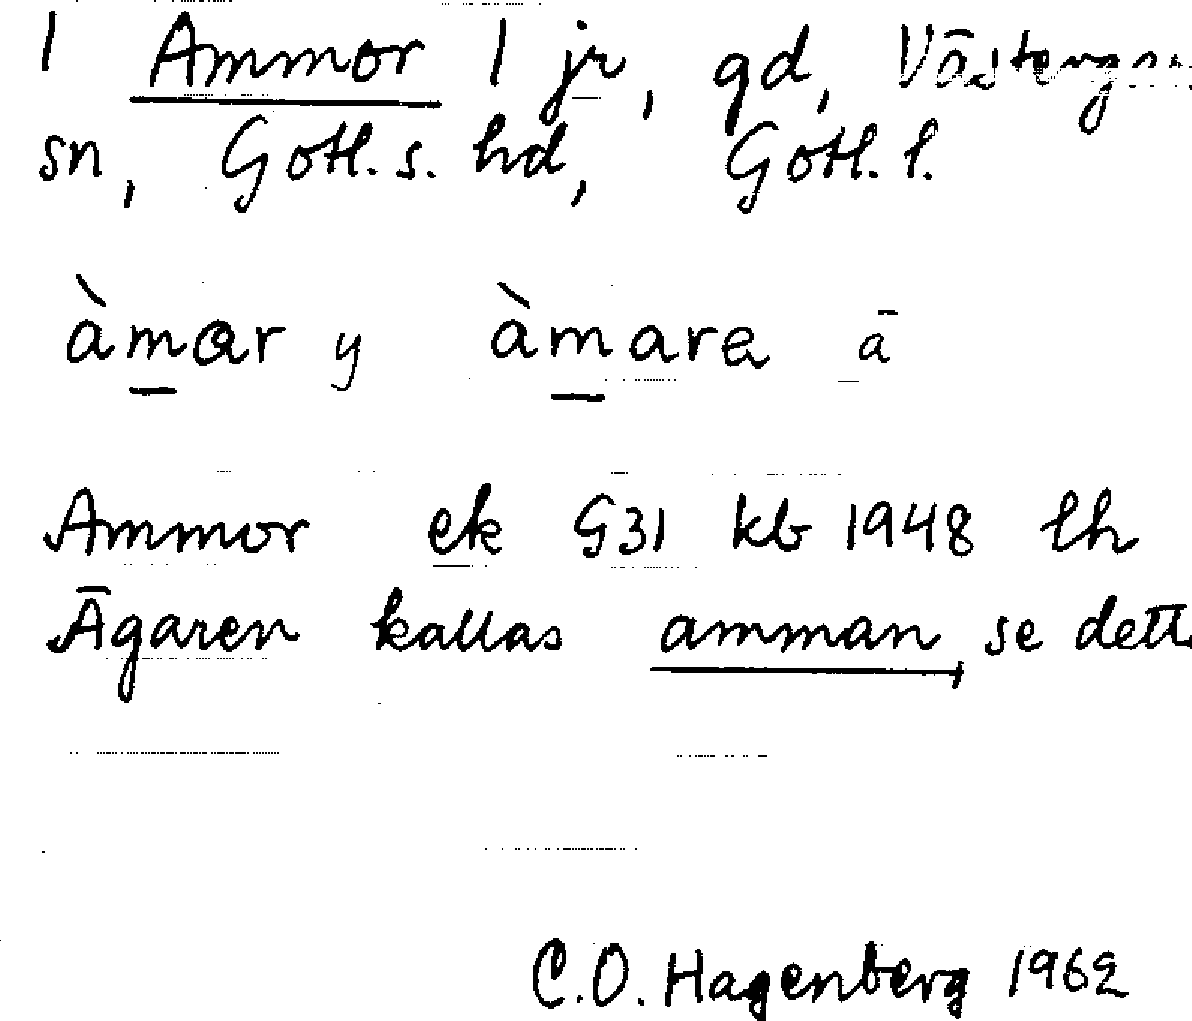 1 Ammor 1 jr, gd, Västerga
sn, Gotl. s. hd, Gotl. l.
àmar y àmare ä
Ammor ek G31 kb 1948 lh
Ägaren kallas amman, se detta
C.O. Hagenberg 1962